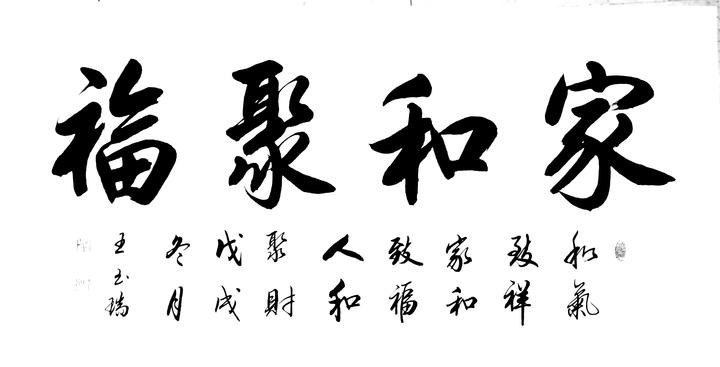 家和聚福
和氣
致祥
家和
致福
人和
聚財
戊戌
冬月
王玉瑞